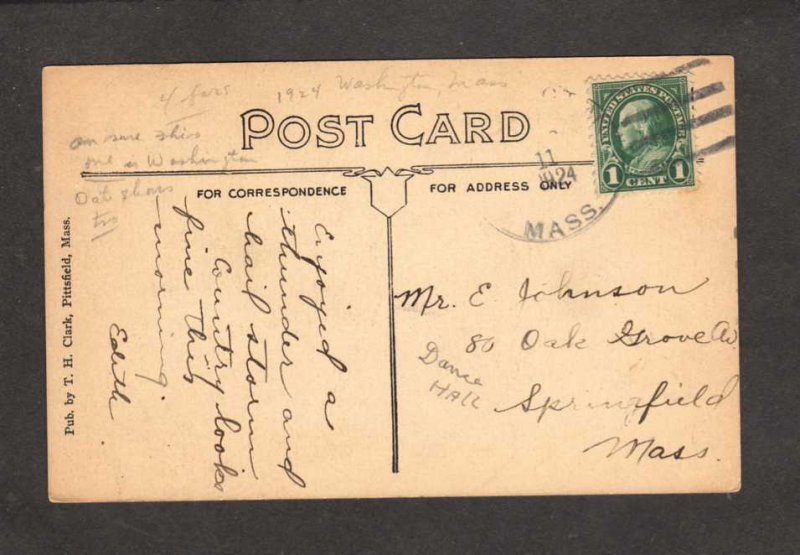 4 fars 1924 Washington, Mass
POST CARD
am sure this
one is Washington
too
FOR CORRESPONDENCE
FOR ADDRESS ONLY
UNITED STATES POSTAGE
1 CENT 1
11
1924
MASS.
Enjoyed a
thunder and
hail storm
Country looks
fine this
morning.
Edith.
Mr. E Johnson
80 Oak Grove Av
Springfield
Mass.
Dance
HALL
Pub. by T. H. Clark, Pittsfield, Mass.